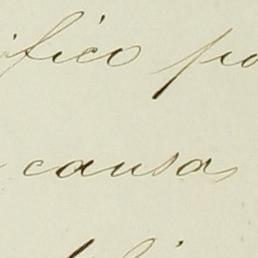 ifico po
causa